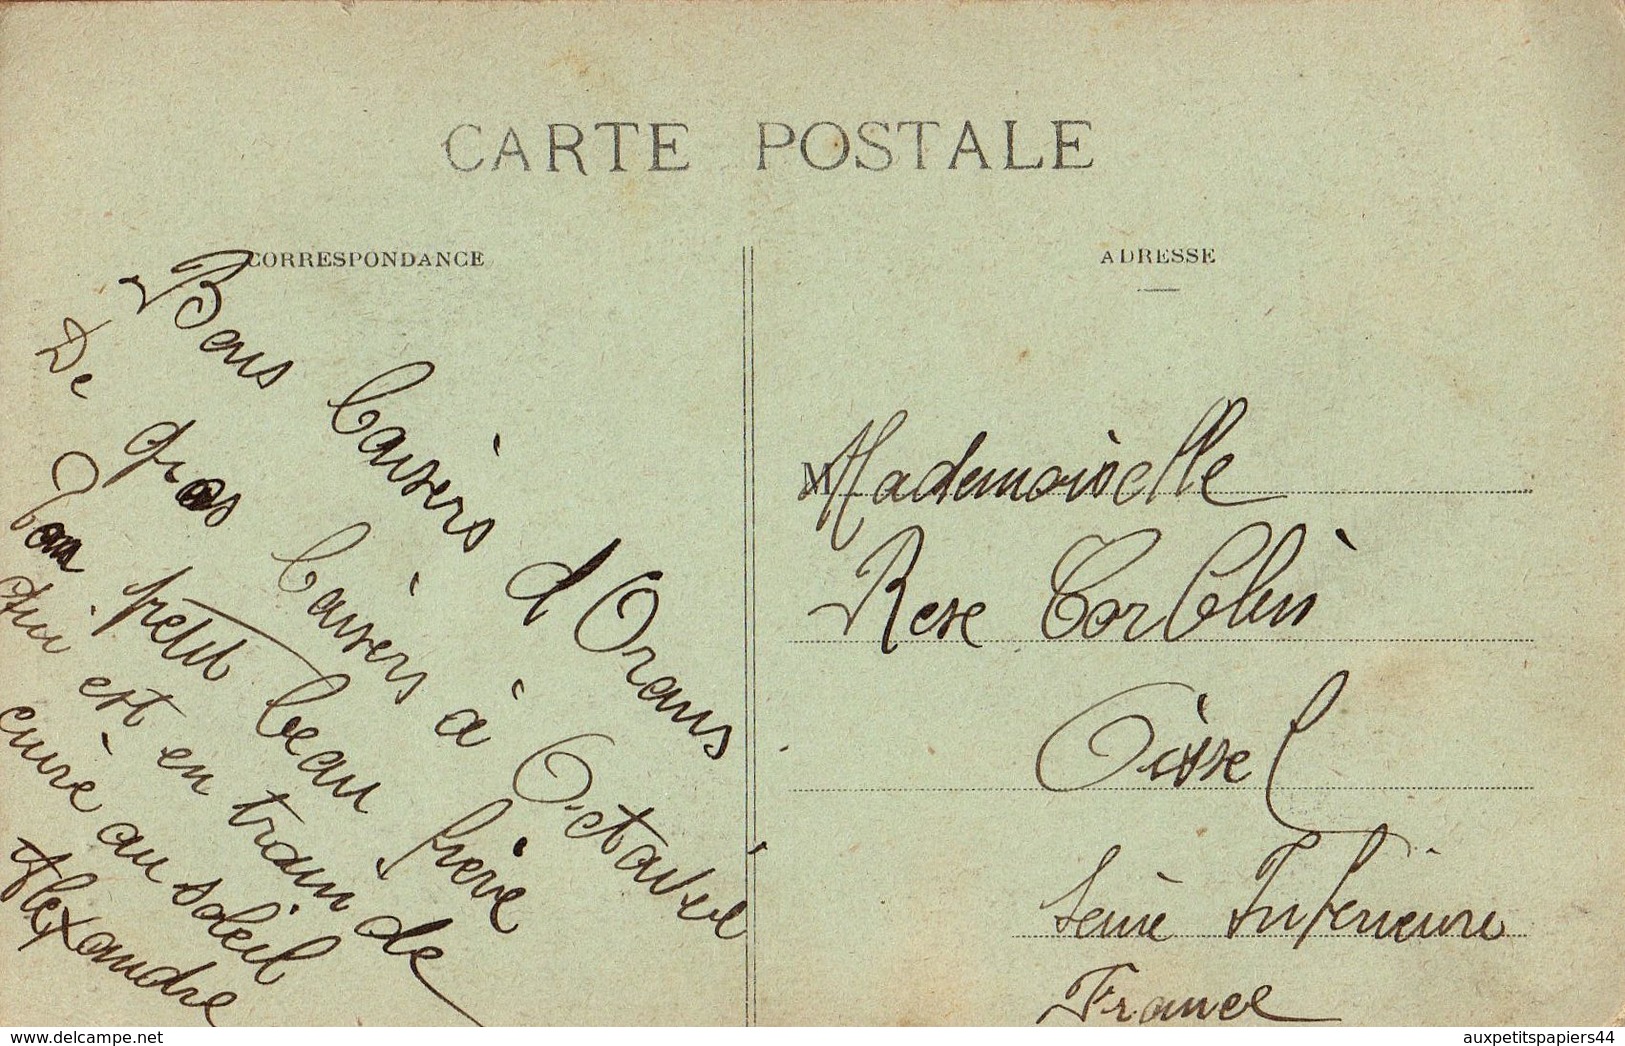 CARTE POSTALE
CORRESPONDANCE
ADRESSE
Bons baisers d'Orans
De gros baisers à Octavie
Ton petit beau frère
qui est en train de
cuire au soleil
Alexandre
Mademoiselle
Rose Corblin
Oissel
Seine Inferieure
France
delcampe.net
auxpetitspapiers44